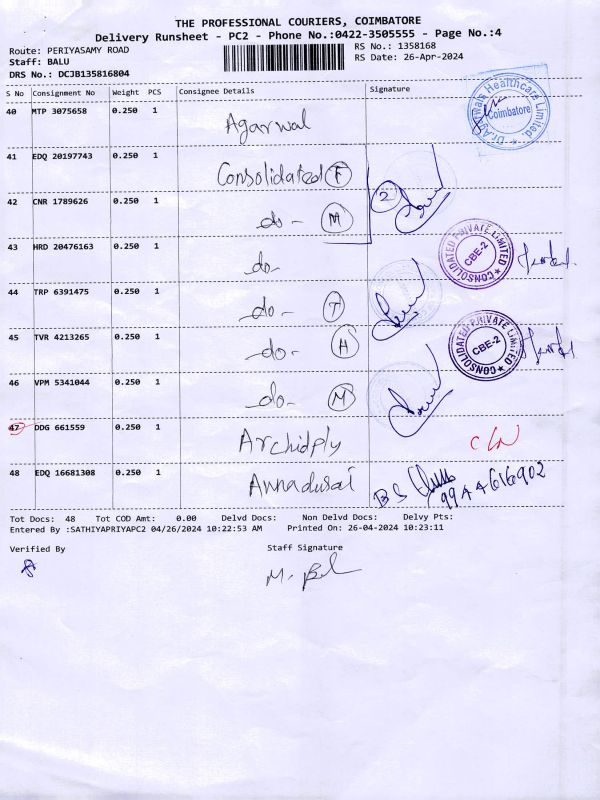 THE PROFESSIONAL COURIERS, COIMBATORE
Delivery Runsheet - PC2 - Phone No.:0422-3505555 - Page No.:4
Route: PERIYASAMY ROAD
RS No.: 1358168
Staff: BALU
RS Date: 26-Apr-2024
DRS No.: DCJB135816804
S No Consignment No Weight PCS Consignee Details Signature
40 MTP 3075658 0.250 1 Agarwal
Dr.Agarwals Healthcare Limited Coimbatore
41 EDQ 20197743 0.250 1 Consolidated F
2
42 CNR 1789626 0.250 1 -do- M
43 HRD 20476163 0.250 1 -do-
CONSOLIDATED PRIVATE LIMITED CBE-2
44 TRP 6391475 0.250 1 -do- T
45 TVR 4213265 0.250 1 -do- H
CONSOLIDATED PRIVATE LIMITED CBE-2
46 VPM 5341044 0.250 1 -do- M
47 DDG 661559 0.250 1 Archidply
48 EDQ 16681308 0.250 1 Annadurai
9944616902
Tot Docs: 48 Tot COD Amt: 0.00 Delvd Docs: Non Delvd Docs: Delvy Pts:
Entered By :SATHIYAPRIYAPC2 04/26/2024 10:22:53 AM Printed On: 26-04-2024 10:23:11
Verified By Staff Signature